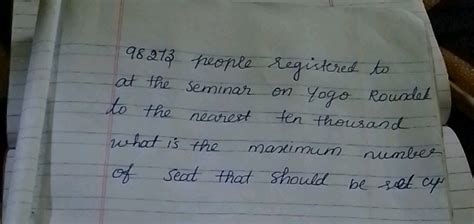 98273 people registered to
at the seminar on Yogo Rounded
to the nearest ten thousand
what is the maximum number
of seat that should be set up